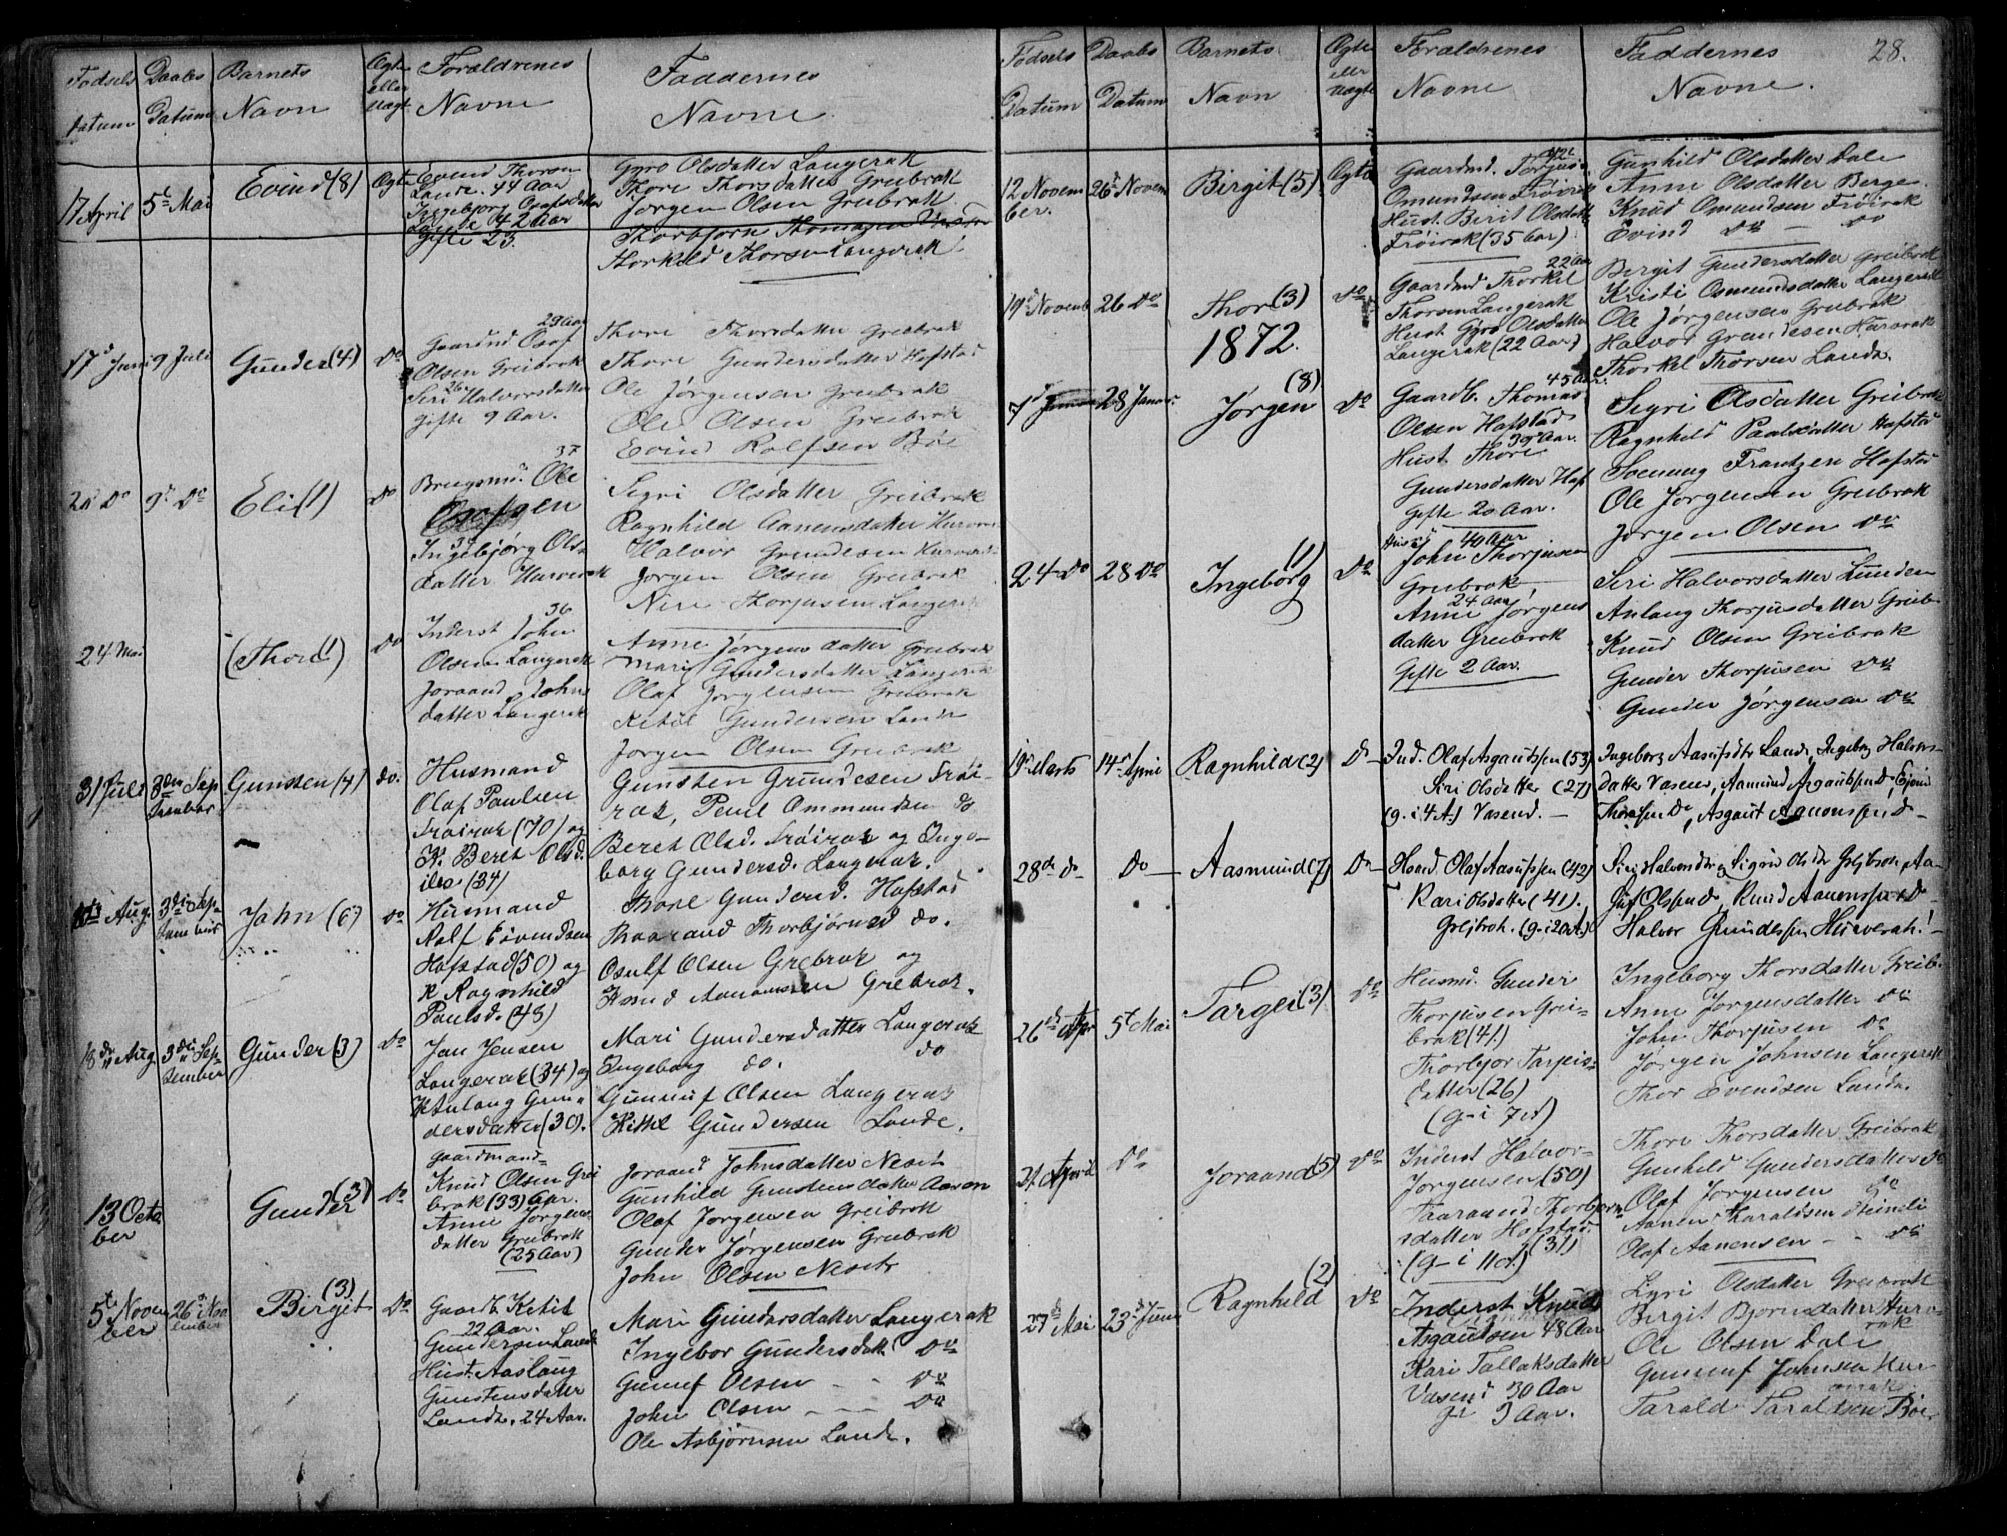 Fødsels
Datum
Daabs
Datum
Barnets
Navn
Ægte
eller
Uægt
Forældrenes
Navne
Faddernes
Navne
17 April
5te Mai
Evind (8)
Ægte
Evend Thorsen
Lande. 44 Aar
Ingebjorg Osofsdatter
Lande 42 Aar
Gifte 23.
Gyro Olsdatter Langerak
Thore Thorsdatter Greibrok
Jørgen Olsen Greibrok
Thorbjørn Thomasen
Thorkild Thorsen Langerak.
17de Juni
9 Juli
Gunder (4)
Do
29 Aar
Gaardmd Osof
Olsen Greibrok
26
Siri Halvorsdatter
Gifte 9 Aar.
Thore Thorsdatter Greibrok
Thore Gundersdatter Hofstad
Ole Jørgensen Greibrok
Ole Olsen Greibrok
Evind Rolfsen Bøe
Do
9de Do
Eli (1)
Do
37
Brugsmd. Ole
Ingebjørg Ols-
datter
Sigri Olsdatter Greibrok
Ragnhild Aanensdatter
Halvor Grundesen
Jørgen Olsen Greibrok
Nere Thorjusen Langerak
24 Mai
(Thor (1)
Do
36
Inderst John
Olsen Langerak
Joraand Johns
datter Langerak
Anne Jørgensdatter Greibrok
Mari Gundersdatter Langerak
Olaf Jørgensen Greibrok
Ketil Gundersen Lande
Jørgen Olsen Greibrok
31 Juli
3die Sep
tember
Gunsten (4)
do.
Husmand
Olaf Paulsen
Frøirak (40) og
K. Beret Olsd.
ibd. (34)
Gunsten Grundesen Frøi-
rak, Paul Ommundsen do
Beret Olsd. Frøirak og Inge-
borg Gundersd. Langerak.
Aug.
3die Sep-
tember
John (6)
do
Husmand
Rolf Eivendsen
Hofstad (50) og
K. Ragnhild
Paulsd. (48)
Thore Gundersd. Hofstad
Taarand Thorbjørnsd do.
Osulf Olsen Grebrok og
Knud Aanonsen Grebrok.
18de Aug.
3die Sep-
tember
Gunder (3)
do
Jan Jensen
Langerak (34) og
K. Anlaug Gun-
dersdatter (30).
Mari Gundersdatter Langerak
Ingeborg do. do
Gunnuf Olsen Langerak
Kittil Gundersen Lande.
13 Octo
ber
Gunder (3)
Do
Gaardmand
Knud Olsen Grei
brok (33) Aar.
Anne Jørgens-
datter Greibrok
(25 Aar)
Joraand Johnsdatter Neset
Gunhild Gunstensdatter
Olaf Jørgensen Greibrok
Gunder Jørgensen Greibrok
John Olsen Neset
5te Novem
ber
26de Nov
ember
Birgit (3)
Do
Gaardb. Ketil
22 Aar.
Gundersen Lande
Hust. Aaslaug
Gunstensdatter
Lande. 24 Aar.
Mari Gundersdatter Langerak
Ingebor Gundersdatt Do
Gunuf Olsen - - Do
John Olsen - - - Do
Ole Asbjørnsen Lande.
Fødsels
Datum
Daabs
Datum
Barnets
Navn
Ægte
eller
Uægte
Forældrenes
Navne
Faddernes
Navne.
28.
12 Novem
ber.
26de Novem
Birgit (5)
Ægte
42
Gaardmd. Torjus
Omundsen Frøirak
Hust. Berit Olsdatt
Frøirak (35 Aar)
Gunhild Olsdatter Dale
Anne Olsdatter Berge.
Knud Omundsen Frøirak
Evind Do - Do
19de Novemb
26 Do
Thor (3)
Do
22 Aar
Gaardmd Thorkel
Thorsen Langerak
Hust Gyro Olsdatter
Langerak (22 Aar)
Bergit Gundersdatter Greibrok
Kristi Osmundsdatter Langerak
Ole Jørgensen Greibrok
Halvor Grundesen
Thorkel Thorsen Lande.
1872.
7de
28 Januar
(8)
Jørgen
Do
45 Aar.
Gaardb. Thomas
Olsen Hofstad
39 Aar.
Hust. Thore
Gundersdatter Hof
Gifte 20 Aar.
Sigri Olsdatter Greibrok
Ragnhild Paalsdatter Hofstad
Soenung Frantzen Hofstad
Ole Jørgensen Greibrok
Jørgen Olsen Do
24 Do
28 Do
Ingeborg (1)
Do
40 Aar
John Thorjusen
Greibrok
24 Aar
Anne Jørgens
datter Greibrok
Gifte 2 Aar.
Siri Halvorsdatter Lunden
Anlaug Thorjusdatter Greib.
Knud Olsen Greibrok
Gunder Thorjusen Do
Gunder Jørgensen Do
19de Marts
14de April
Ragnhild (2)
Do
Ind. Olaf Asgautsen (53)
Siri Olsdatter (27)
(g. i 4 A.) Vasend. -
Ingeborg Aasulfsdtr Lande, Ingeborg Halvors-
datter Vasend, Aamund Asgautsen Do, Ejvind
Thorsen Do, Asgaut Aanonsen, Do
28de do
Do
Aasmund (7)
Do
Husmd. Olaf Aasulfsen (49)
Kari Olsdatter (41).
Grejbrok. (g. i 20 A.)
Siri Halvorsdtr, Sigrid Olsdtr Grejbrok, Aa-
Olsen do, Knud Aanonsen Do
Halvor Grundesen Hurverak!
26de Apr
5te Mai
Targei (3)
Do
Husmd. Gunder
Thorjusen Grei-
brok (41)
Thorbjor Tarjeis-
datter (26)
(g. i 7 A)
Ingeborg Thorsdatter Greib.
Anne Jørgensdatter Do
John Thorjusen Do
Jørgen Johnsen Langerak
Thor Evendsen Lande.
21 April
Do
Joraand (5)
Do
Inderst Halvor
Jørgensen (50)
Taaraand Thorbjørn
sdatter Hofstad
(31)
(g. i 11 A.)
Thore Thorsdatter Greibrok
Gunhild Gundersdatter Do
Olaf Jørgensen Do
Aanen Tharaldsen
Olaf Aanensen - - Do
27de Mai
23de Juni
(2)
Ragnhild
Do
Inderst Knud
Asgautsen 48 Aar
Kari Tallaksdatter
Vasend 30 Aar
gi 3 Aar.
Sigri Olsdatter Greibrok
Birgit Bjørnsdatter Hurv-
rak
Ole Olsen Dale
Gunnuf Johnsen Hur
verak
Tarald Taraldsen Bøe